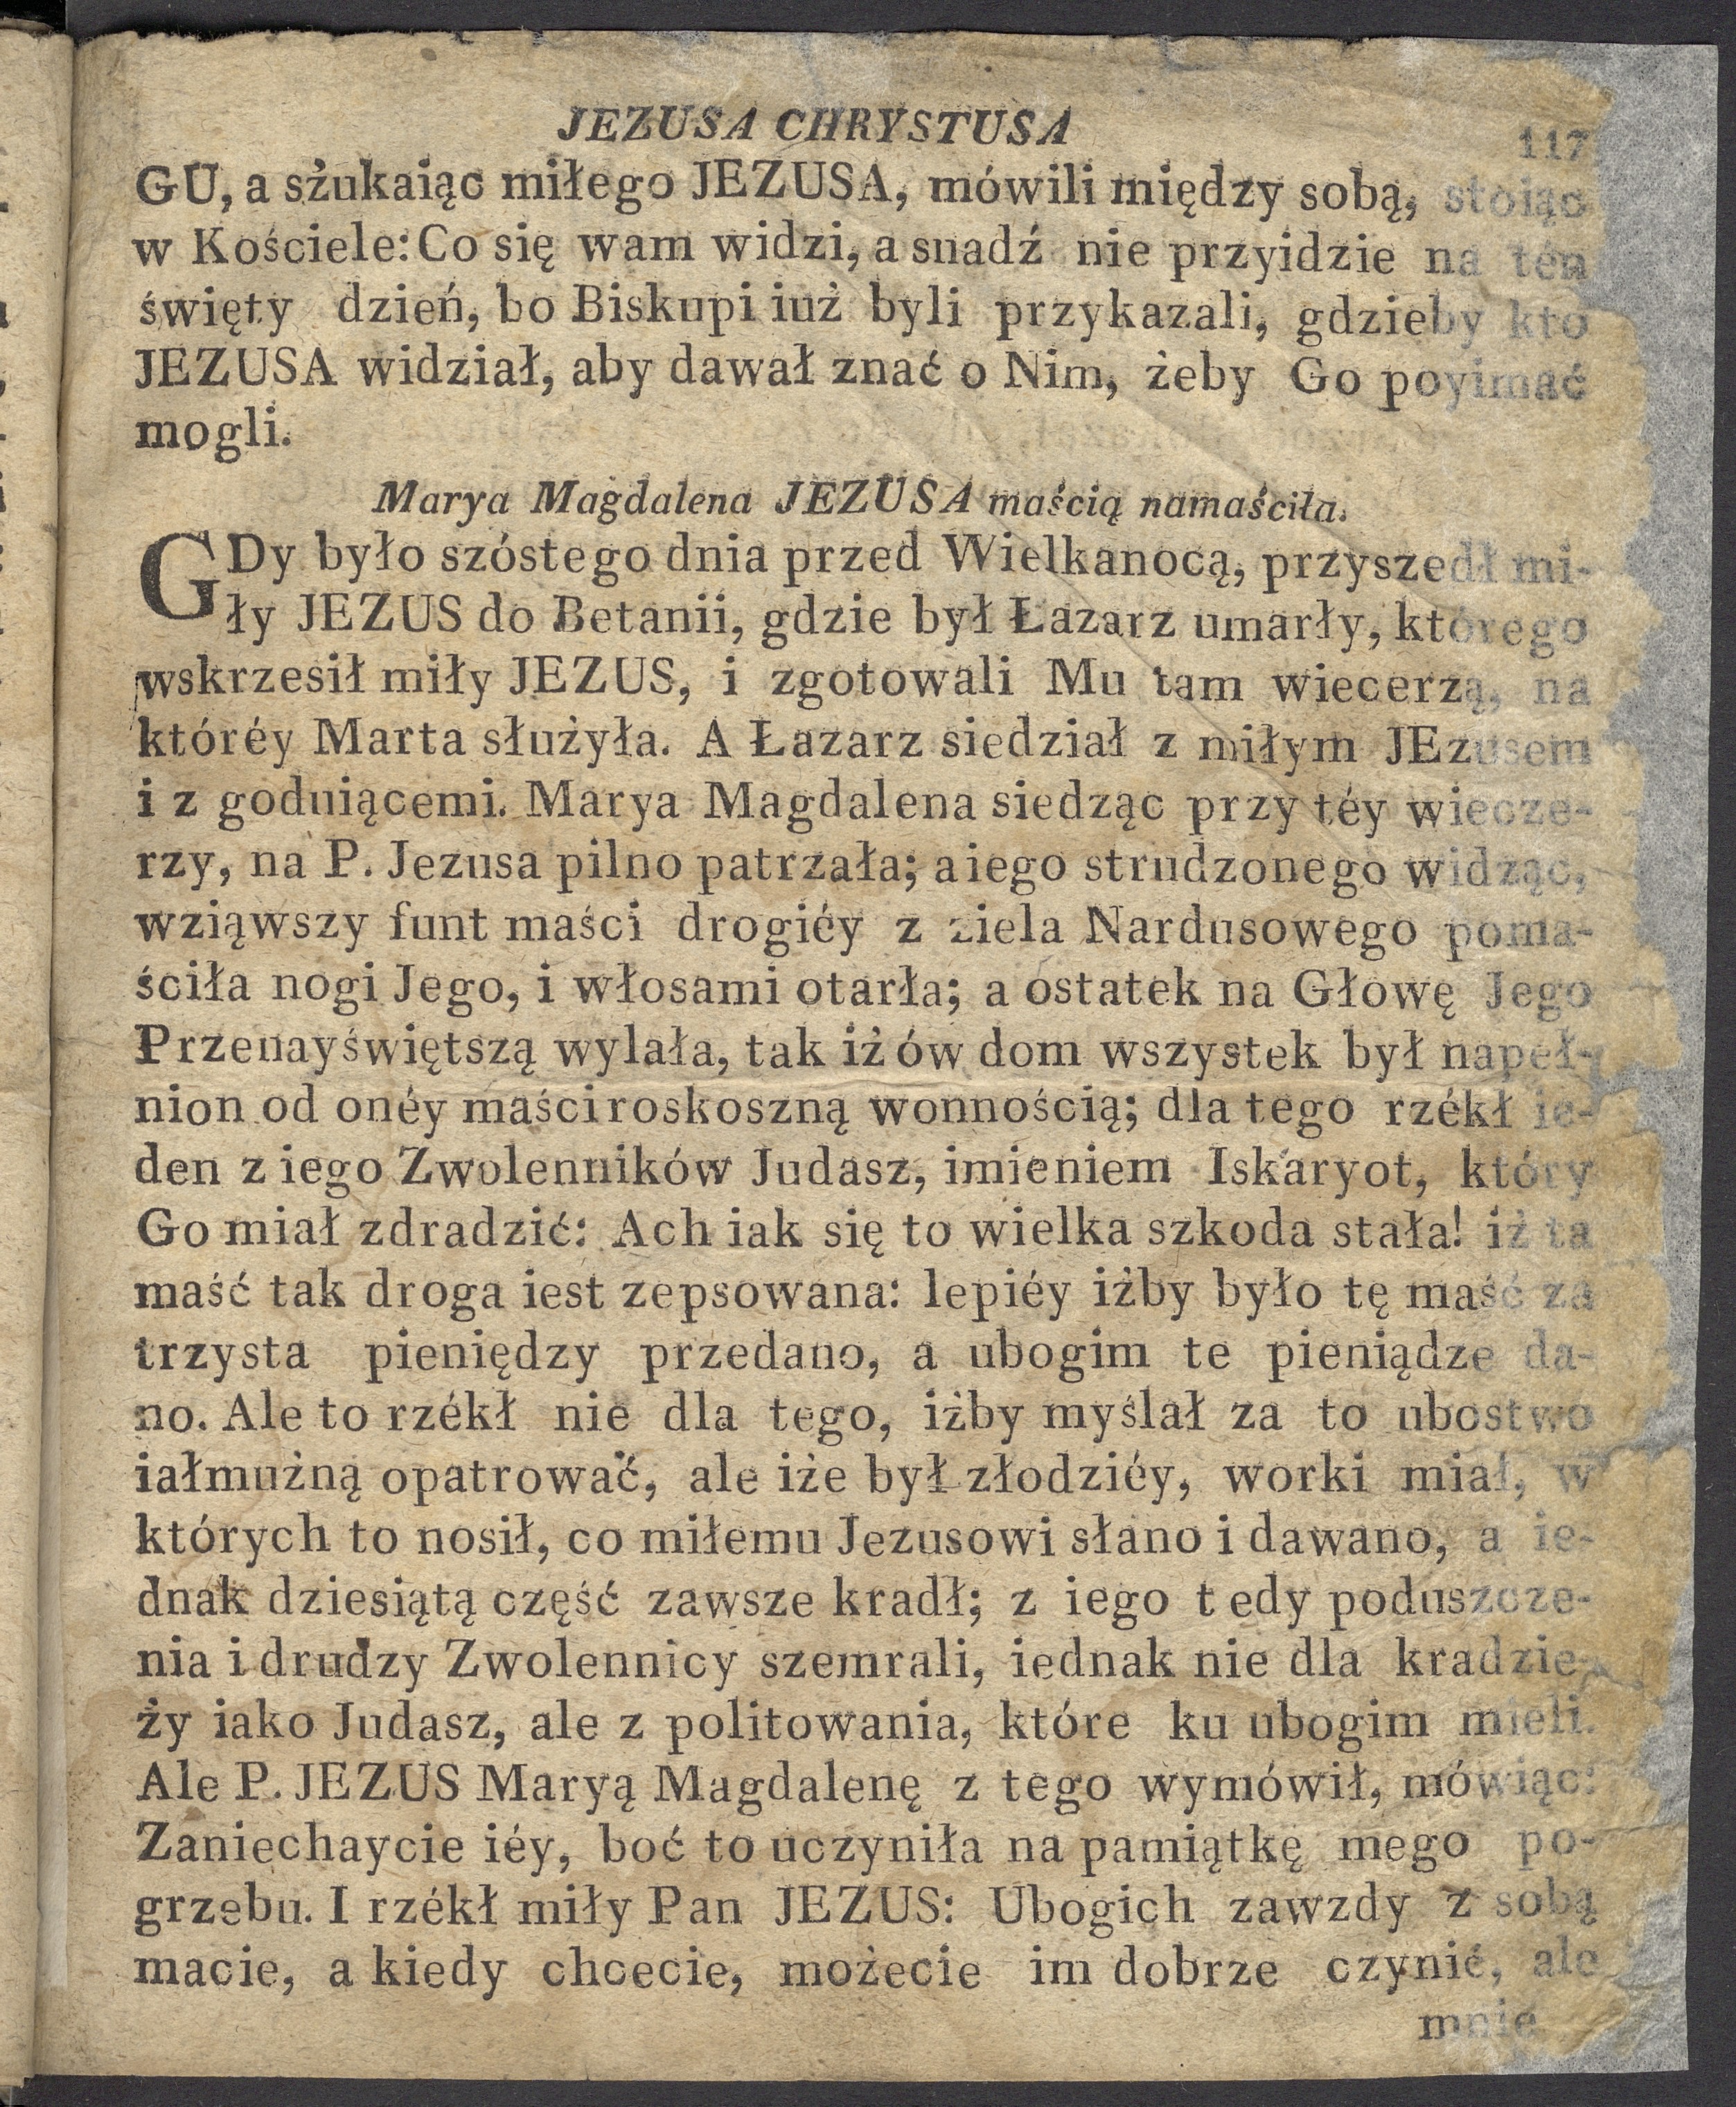 JEZUSA CHRYSTUSA 117
GU, a szukaiąc miłego JEZUSA, mówili między sobą, stoiąc
w Kościele: Co się wam widzi, a snadź nie przyidzie na tén
święty dzień, bo Biskupi iuż byli przykazali, gdzieby kto
JEZUSA widział, aby dawał znać o Nim, żeby Go poyimać
mogli.
Marya Magdalena JEZUSA maścią namaściła.
GDy było szóstego dnia przed Wielkanocą, przyszedł mi-
ły JEZUS do Betanii, gdzie był Łazarz umarły, którego
wskrzesił miły JEZUS, i zgotowali Mu tam wiecerzą, na
któréy Marta służyła. A Łazarz siedział z miłym JEzusem
i z goduiącemi. Marya Magdalena siedząc przy téy wiecze-
rzy, na P. Jezusa pilno patrzała; a iego strudzonego widząc,
wziąwszy funt maści drogiéy z ziela Nardusowego poma-
ściła nogi Jego, i włosami otarła; a ostatek na Głowę Jego
Przenayświętszą wylała, tak iż ów dom wszystek był napeł-
nion od onéy maści roskoszną wonnością; dla tego rzékł ie-
den z iego Zwolenników Judasz, imieniem Iskaryot, który
Go miał zdradzić: Ach iak się to wielka szkoda stała! iż ta
maść tak droga iest zepsowana: lepiéy iżby było tę maść za
trzysta pieniędzy przedano, a ubogim te pieniądze da-
no. Ale to rzékł nie dla tego, iżby myślał za to ubostwo
iałmużną opatrować, ale iże był złodziéy, worki miał, w
których to nosił, co miłemu Jezusowi słano i dawano, a ie-
dnak dziesiątą część zawsze kradł; z iego tedy poduszcze-
nia i drudzy Zwolennicy szemrali, iednak nie dla kradzie-
ży iako Judasz, ale z politowania, które ku ubogim mieli.
Ale P. JEZUS Maryą Magdalenę z tego wymówił, mówiąc:
Zaniechaycie iéy, boć to uczyniła na pamiątkę mego po-
grzebu. I rzékł miły Pan JEZUS: Ubogich zawzdy z sobą
macie, a kiedy chcecie, możecie im dobrze czynić, ale
mnie